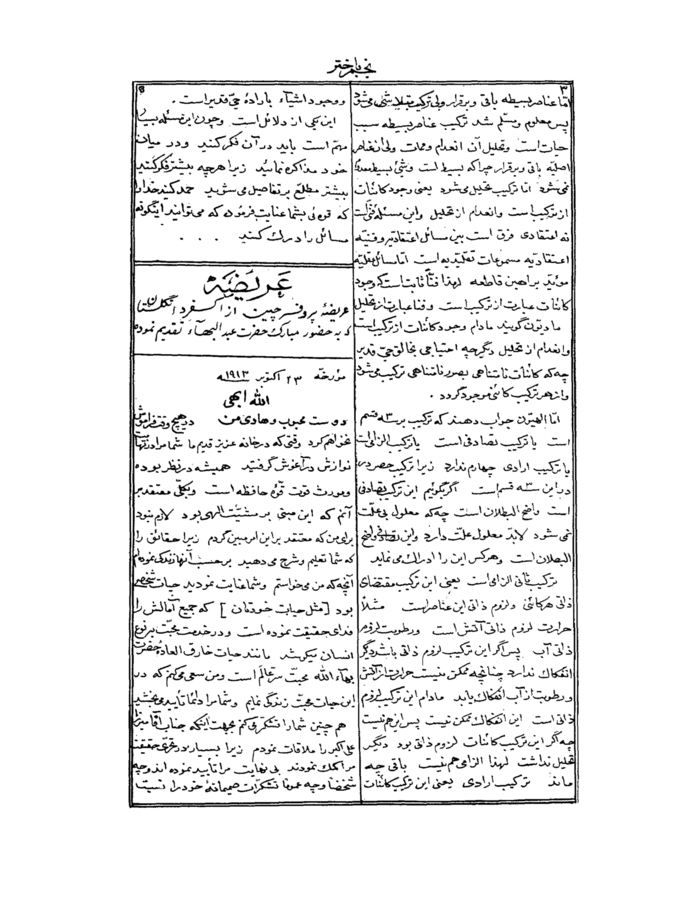 نجم باختر
۳
امّا عناصر بسیطه باقی و برقرار ولی ترکیب متلاشی میشود
پس معلوم و مسلّم شد ترکیب عناصر بسیطه سبب
حیات است و تحلیل آن انعدام و ممات ولی عناصر
اصلیّه باقی و برقرار چرا که بسیط است و شیئ بسیط معدوم
نمی‌شود امّا ترکیب تحلیل میشود یعنی وجود کائنات
از ترکیب است و انعدام از تحلیل و این مسئله فنّی است
نه اعتقادی فرق است بین مسائل اعتقادیّه و فنّیّه
اعتقادیّه مسموعات تقلیدیّه است امّا مسائل عقلیّه
مؤیّد براهین قاطعه لهذا فنّاً ثابت است که وجود
کائنات عبارت از ترکیب است و فنا عبارت از تحلیل
مادّیون گویند مادام وجود کائنات از ترکیب است
و انعدام از تحلیل دیگر چه احتیاجی بخالق حیّ قدیر
چه که کائنات نامتناهی بصور نامتناهی ترکیب می‌شود
و از هر ترکیب کائنی موجود گردد .
امّا الهیّون جواب دهند که ترکیب بر سه قسم
است یا ترکیب تصادفی است یا ترکیب الزامی است
یا ترکیب ارادی چهارم ندارد زیرا ترکیب حصر در
در این سه قسم است اگر بگوئیم این ترکیب تصادفی
است واضح البطلان است چه که معلول بی علّت
نمی شود لابدّ معلول علّت دارد و این تصادفی واضح
البطلان است و هر کس این را ادراک می نماید
ترکیب ثانی الزامی است یعنی این ترکیب مقتضای
ذاتی هر کائنی و لزوم ذاتی این عناصر است مثلاً
حرارت لزوم ذاتی آتش است و رطوبت لزوم
ذاتی آب پس اگر این ترکیب لزوم ذاتی باشد دیگر
انفکاک ندارد چنانچه ممکن نیست حرارت از آتش
و رطوبت از آب انفکاک یابد مادام این ترکیب لزوم
ذاتی است این انفکاک ممکن نیست پس این هم نیست
چه اگر این ترکیب کائنات لزوم ذاتی بود دیگر
تحلیل نداشت لهذا الزامی هم نیست باقی چه
ماند ترکیب ارادی یعنی این ترکیب کائنات
و وجود اشیاء بارادهٔ حیّ قدیر است .
این یکی از دلائل است و چون این مسئله بسیار
مهمّ است باید در آن فکر کنید و در میان
خود مذاکره نمایید زیرا هرچه بیشتر فکر کنید
بیشتر مطّلع بر تفاصیل می شوید حمد کنید خدا را
که قوّه ئی بشما عنایت فرموده که می توانید اینگونه
مسائل را درک کنید . . .
عریضه
عریضهٔ پروفسر چین از اکسفرد انگلستان
که به حضور مبارک حضرت عبد البهآء تقدیم نموده
مؤرّخهٔ ۲۳ اکتوبر ۱۹۱۳
اللّٰه ابهی
دوست محبوب و هادی من در هیچ وقت فراموش
نخواهم کرد وقتی که در خانه عزیز قدیم ما شما مرا در نهایت
نوازش در آغوش گرفتید همیشه در نظر بوده
و مورث قوّت قوّهٔ حافظه است و بکلّی معتقد بر
آنم که این مبنی بر مشیّت الهی بود لازم نبود
برای من که معتقد بر این امر مبین گردم زیرا حقائقی را
که شما تعلیم و شرح می دهید بر حسب آنها زندگی نموده‌ام
آنچه که من می خواستم و شما عنایت نمودید حیات شخصی
بود [ مثل حیات خودتان ] که جمیع آمالش را
فدای حقیقت نموده است و در خدمت محبّت بر نوع
انسان میکوشد مانند حیات خارق العادهٔ حضرت
بهآء اللّٰه محبّت سرّ عالم است و من سعی می کنم که در
این حیات محبّت زندگی نمایم و شما مرا دائماً تأیید می بخشید
هم چنین شما را تشکّر می کنم بجهت اینکه جناب آقا میرزا
علی اکبر را ملاقات نمودم زیرا بسیار در ترقّی حقیقت
مرا کمک نمودند بی نهایت مرا تأیید نموده اند و چه
شخصاً و چه عموماً تشکّرات صمیمانهٔ خود را نسبت